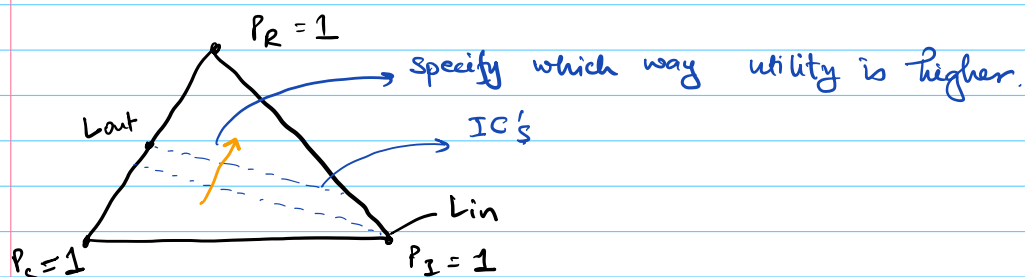 P_R = 1
Specify which way utility is higher.
Lout
IC's
Lin
P_S = 1
P_I = 1